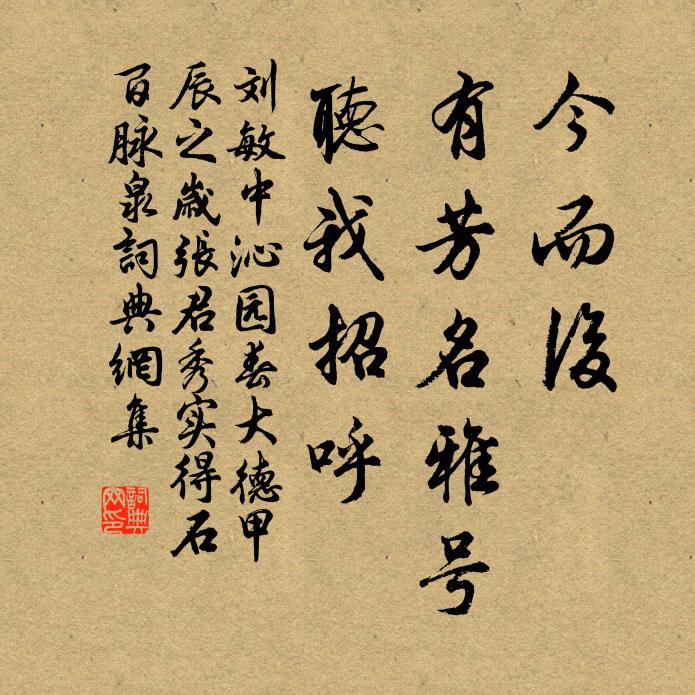 今而後
有芳名雅号
聽我招呼
刘敏中沁园春大德甲
辰之歲張君秀实得石
百脉泉詞典網集
詞典网印